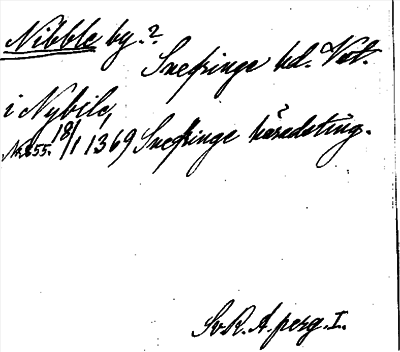 Nibble by.?
Snefringe hd. Vstm.
i Nybile,
No. 855. 18/1 1369 Snefringe häradsting.
Sv. R. A. perg. I.